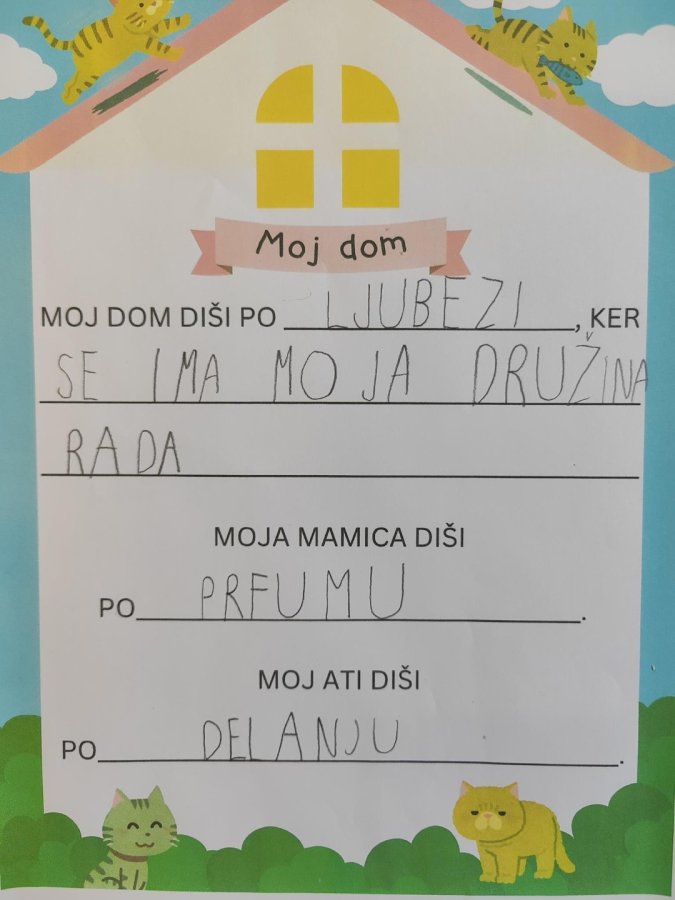 Moj dom
MOJ DOM DIŠI PO LJUBEZI, KER
SE IMA MOJA DRUŽINA
RADA
MOJA MAMICA DIŠI
PO PRFUMU.
MOJ ATI DIŠI
PO DELANJU.